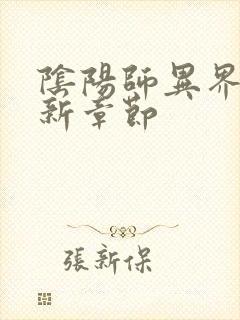 陰陽師異界
新章節
張新保